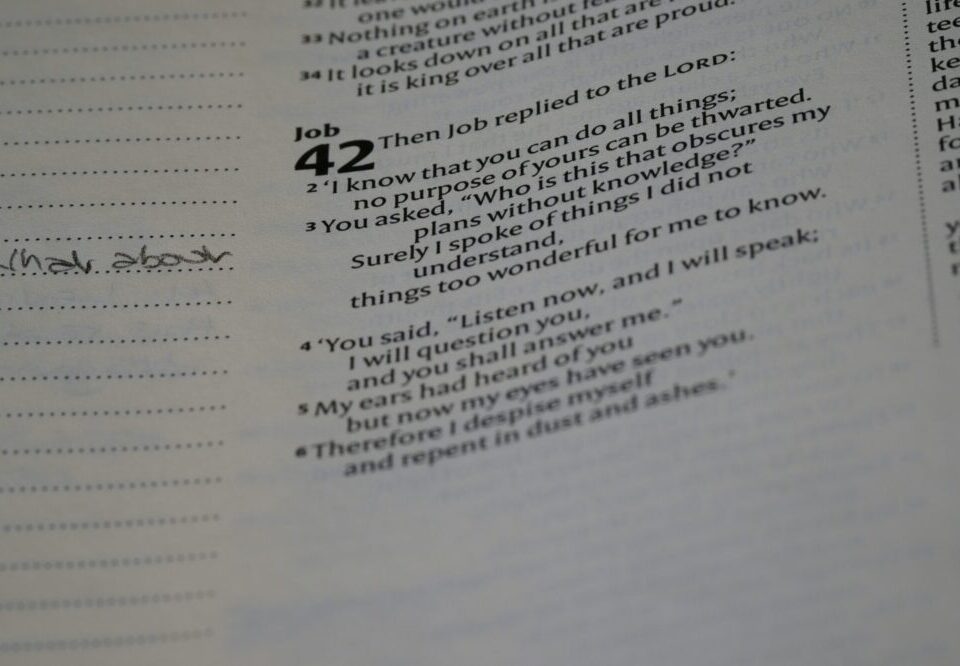 one would
33 Nothing on earth is
a creature without fea
34 It looks down on all that are
it is king over all that are proud.
Job
42 Then Job replied to the LORD:
2 ‘I know that you can do all things;
no purpose of yours can be thwarted.
3 You asked, “Who is this that obscures my
plans without knowledge?”
Surely I spoke of things I did not
understand,
things too wonderful for me to know.
4 ‘You said, “Listen now, and I will speak;
I will question you,
and you shall answer me.”
5 My ears had heard of you
but now my eyes have seen you.
6 Therefore I despise myself
and repent in dust and ashes.’
about